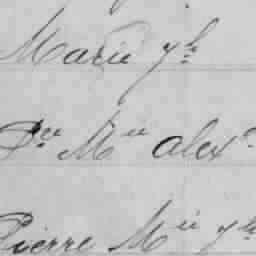 Marie yh
Pre Mie alexe
Pierre Mie yh